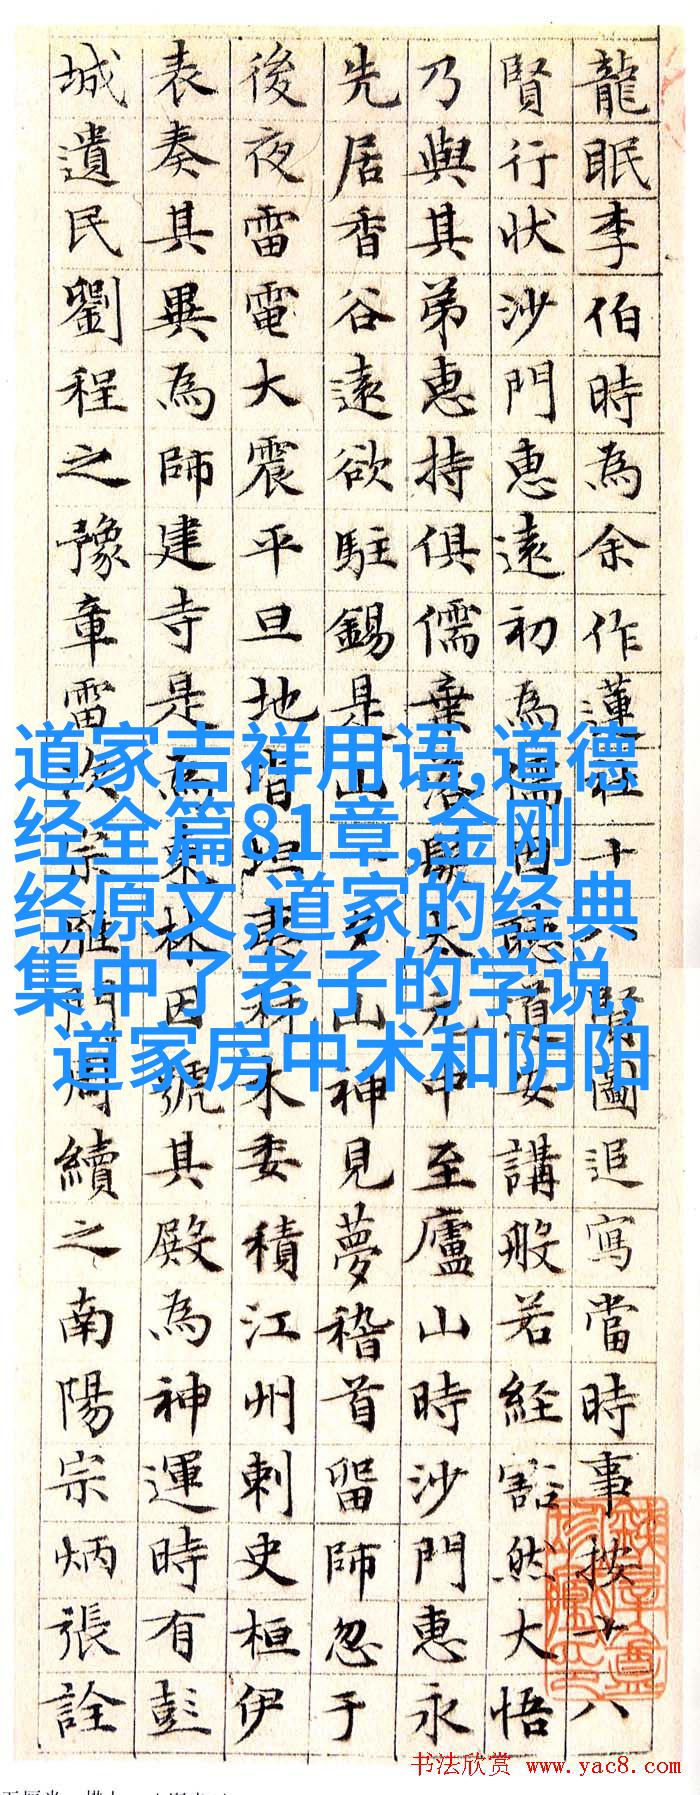 龍眠李伯時為余作蓮社十八賢圖追寫當時事按十八
賢行狀沙門惠遠初為儒因聽道安講般若経豁然大悟
乃與其弟惠持俱儒棄落髮太元中至廬山時沙門惠永
先居香谷遠欲駐錫是山一夕山神見夢稽首留師忽于
後夜雷電大震平旦地皆坦夷材木委積江州刺史桓伊
表奏其異為師建寺是為東林因號其殿為神運時有彭
城遺民劉程之豫章雷次宗雁門周續之南陽宗炳張詮
道家吉祥用语,道德
经全篇81章,金刚
经原文,道家的经典
集中了老子的学说,
道家房中术和阴阳
书法欣赏 www.yac8.com